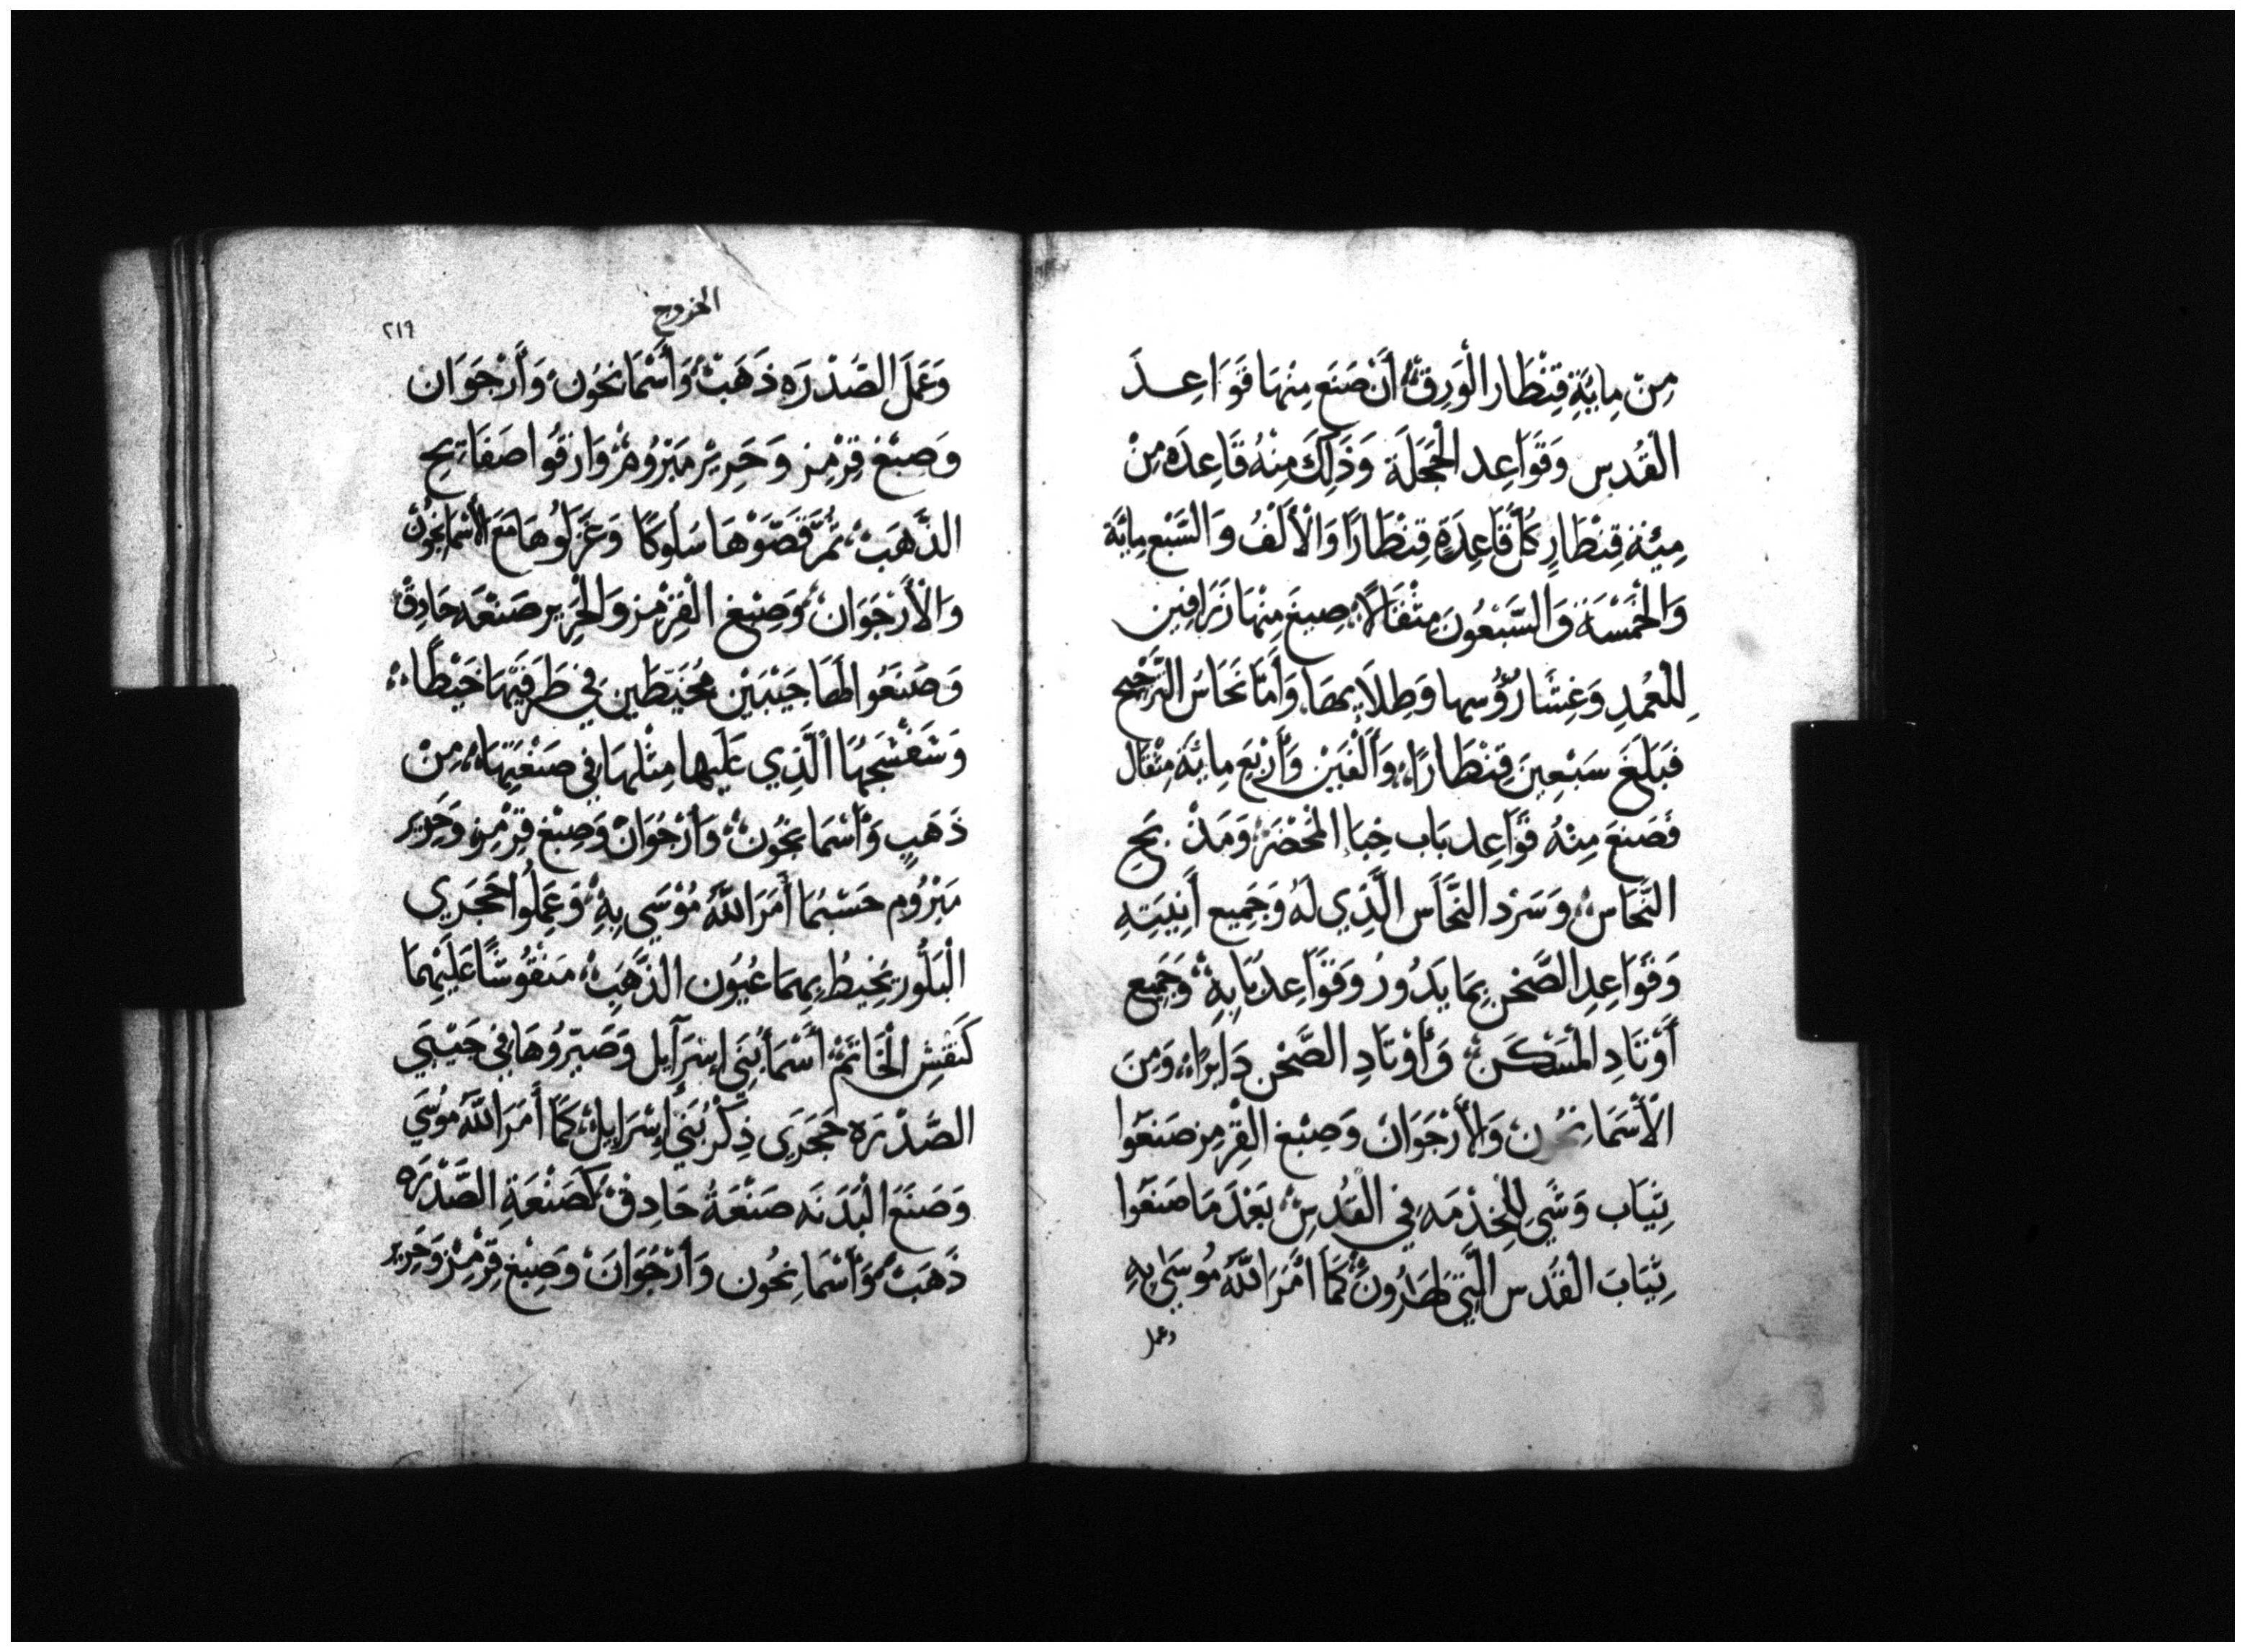 مِنْ مِايَّةِ قِنْطَار الْوَرِق أَنْ صَنَع مِنْهَا قَوَاعِدَ
الْقُدس وَقَوَاعِد الْحَجَلَة وَذَلِكَ مِنْهُ قَاعِدَه مِنْ
مِيْة قِنْطَارٍ كُلّ قَاعِدَةٍ قِنْطَارًا وَالْأَلْفُ وَالسَّبْع مِايَّة
وَالْخَمْسَة وَالسَّبْعُونَ مِثْقَالًا صِيغَ مِنْهَا زَرَافِين
لِلْعُمْدِ وَغِشَا رُؤُسِها وَطِلَايِهَا وَأَمَّا نَحَاسُ التَّرْجِيح
فَبَلَغَ سَبْعِينَ قِنْطَارًا وَأَلْفَيْن وَأَرْبَعَ مايَّة مِثْقَال
فَصَنعَ مِنْهُ قَوَاعِد بَاب خِبَاءِ المَحْضَرَ وَمَذْبَح
النُّحَاس وَسَرْد النُّحَاس الَّذِي لَهُ وَجَمِيع أَنِيَتِهِ
وَقَوَاعِدِ الصَّحْن بِمَا يَدُورُ وَقَوَاعِد بَابِهِ وَجَمِيع
أَوْتَادِ الْمَسْكَن وَأَوْتَادِ الصَّحْن دَايِرًا وَمِنَ
الْأَسْمَانجُون وَالْأَرْجَوَان وَصِبْغ الْقِرْمِز صَنَعُوا
ثِيَاب وَشَيِ لِلْخِدْمَه فِي الْقُدسِ بَعْدَ مَا صَنَعُوا
ثِيَابَ الْقُدس الَّتِي لِهَارُونَ كَمَا أَمَرَ اللَّهُ مُوسَى بِهِ
وعمل
الخروج
٢١٩
وَعَمَلَ الصَّدْرَه ذَهَبْ وَأَسْمَانجُون وَأَرْجَوَان
وَصِبْغ قِرْمِز وَحَرِيْر مَبْرُومْ وَارْقُوا صَفَايِح
الذَّهَبْ ثُمَّ قَصَّوْهَا سُلُوكًا وَغَزَلُوهَا مَعَ الْأَسْمَانجُون
وَالْأَرْجَوَان وَصِبْغ الْقِرْمز وَالْحَرِير صَنْعَه حَادِقْ
وَصَنَعُوا لَهَا جَيْبَيْن مُخَيَّطَين فِي طَرَفَيْهَا خَيْطًا
وَشَفْشَجهَا الَّذِي عَلَيها مِثْلهَا فِي صَنْعَتِهَا مِنْ
ذَهَبٍ وَأَسْمَانجُون وَأَرْجُوَانْ وَصِبْغ قِرْمِز وَحَرِير
مَبْرُوم حَسْبُمَا أَمَرَ اللَّهُ مُوْسَى بِهِ وَعَمِلُوا حَجَرَي
الْبَلُّور يُحِيطُ بِهِمَا عُيُون الذَّهَبْ مَنْقُوشًا عَلَيْهِمَا
كَنَقْشِ الْخَاتَمْ أَسْمَا بَنِي إِسْرَآيل وَصَيَّرُوهَا فِي جَيْبَي
الصَّدْرَه حَجَرَي ذِكْر بَنِي إِسْرَايِل كَمَا أَمَرَ اللَّهُ مُوسَي
وَصَنَعَ الْبَدَنَه صَنْعَةُ حَادِقْ كَصَنْعَةِ الصَّدْرَه
ذَهَبْ وَأَسْمَانِجُون وَأَرْجُوَانْ وَصِبْغ قِرْمْزْ وَحَرِير